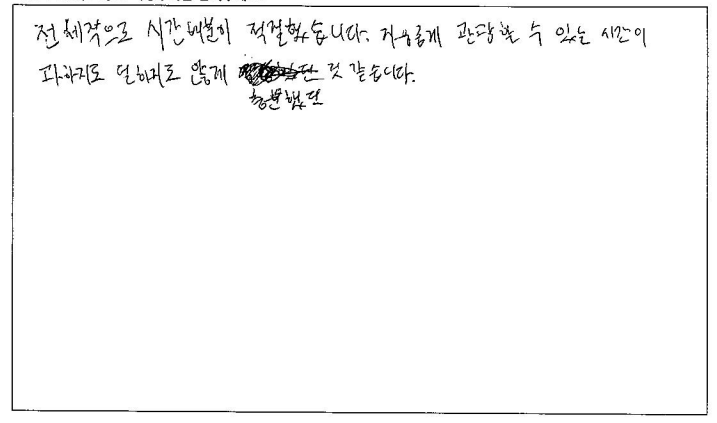 전체적으로 시간배분이 적절했습니다. 자유롭게 관광할 수 있는 시간이
과하지도 덜하지도 않게 것 같습니다.
충분했던